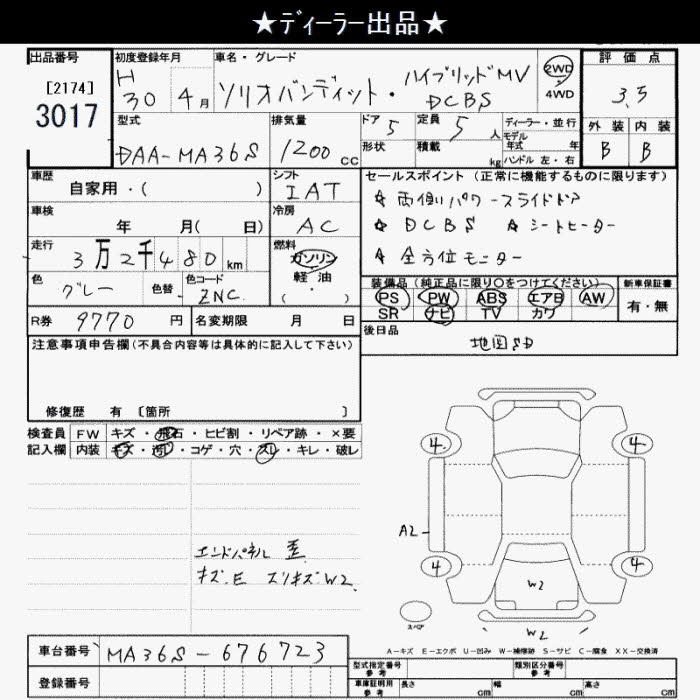 ★ディーラー出品★
出品番号 初度登録年月 車名・グレード 評価点
[2174]
3017
H 30 4月 ソリオバンディット・ハイブリッドMV DCBS 2WD 4WD
3.5
型式 排気量 ドア 5 定員 5人 ディーラー・並行
モデル年式 年
外装 内装
DAA-MA36S 1200cc 形状 積載 kg ハンドル 左・右
B B
車歴 シフト セールスポイント(正常に機能するものに限ります)
自家用・( ) IAT ☆ 両側パワースライドドア
車検 冷房 ☆ DCBS ☆ シートヒーター
年 月( 日) AC
走行 燃料 ☆ 全方位モニター
3万2千480km ガソリン
軽・油
・( )
色 色替 色コード 装備品(純正品に限り○をつけてください) 新車保証書
グレー ZNC PS PW ABS エアB AW 有・無
SR ナビ TV カワ
R券 9770円 名変期限 月 日 後日品
地図SD
注意事項申告欄(不具合内容等は具体的に記入して下さい)
修復歴 有 [箇所 ]
検査員 FW キズ・飛石・ヒビ割・リペア跡・×要
記入欄 内装 キズ・汚レ・コゲ・穴・スレ・キレ・破レ
4 4
A2
4 4
W2
W2
スペア
エンドパネル 歪
キズ.E スリキズW2
A-キズ E-エクボ U-凹み W-補修跡 S-サビ C-腐食 XX-交換済
車台番号 MA36S-676723
登録番号
型式指定番号 参考 類別区分番号 参考
車庫証明用 参考 長さ cm 幅 cm 高さ cm